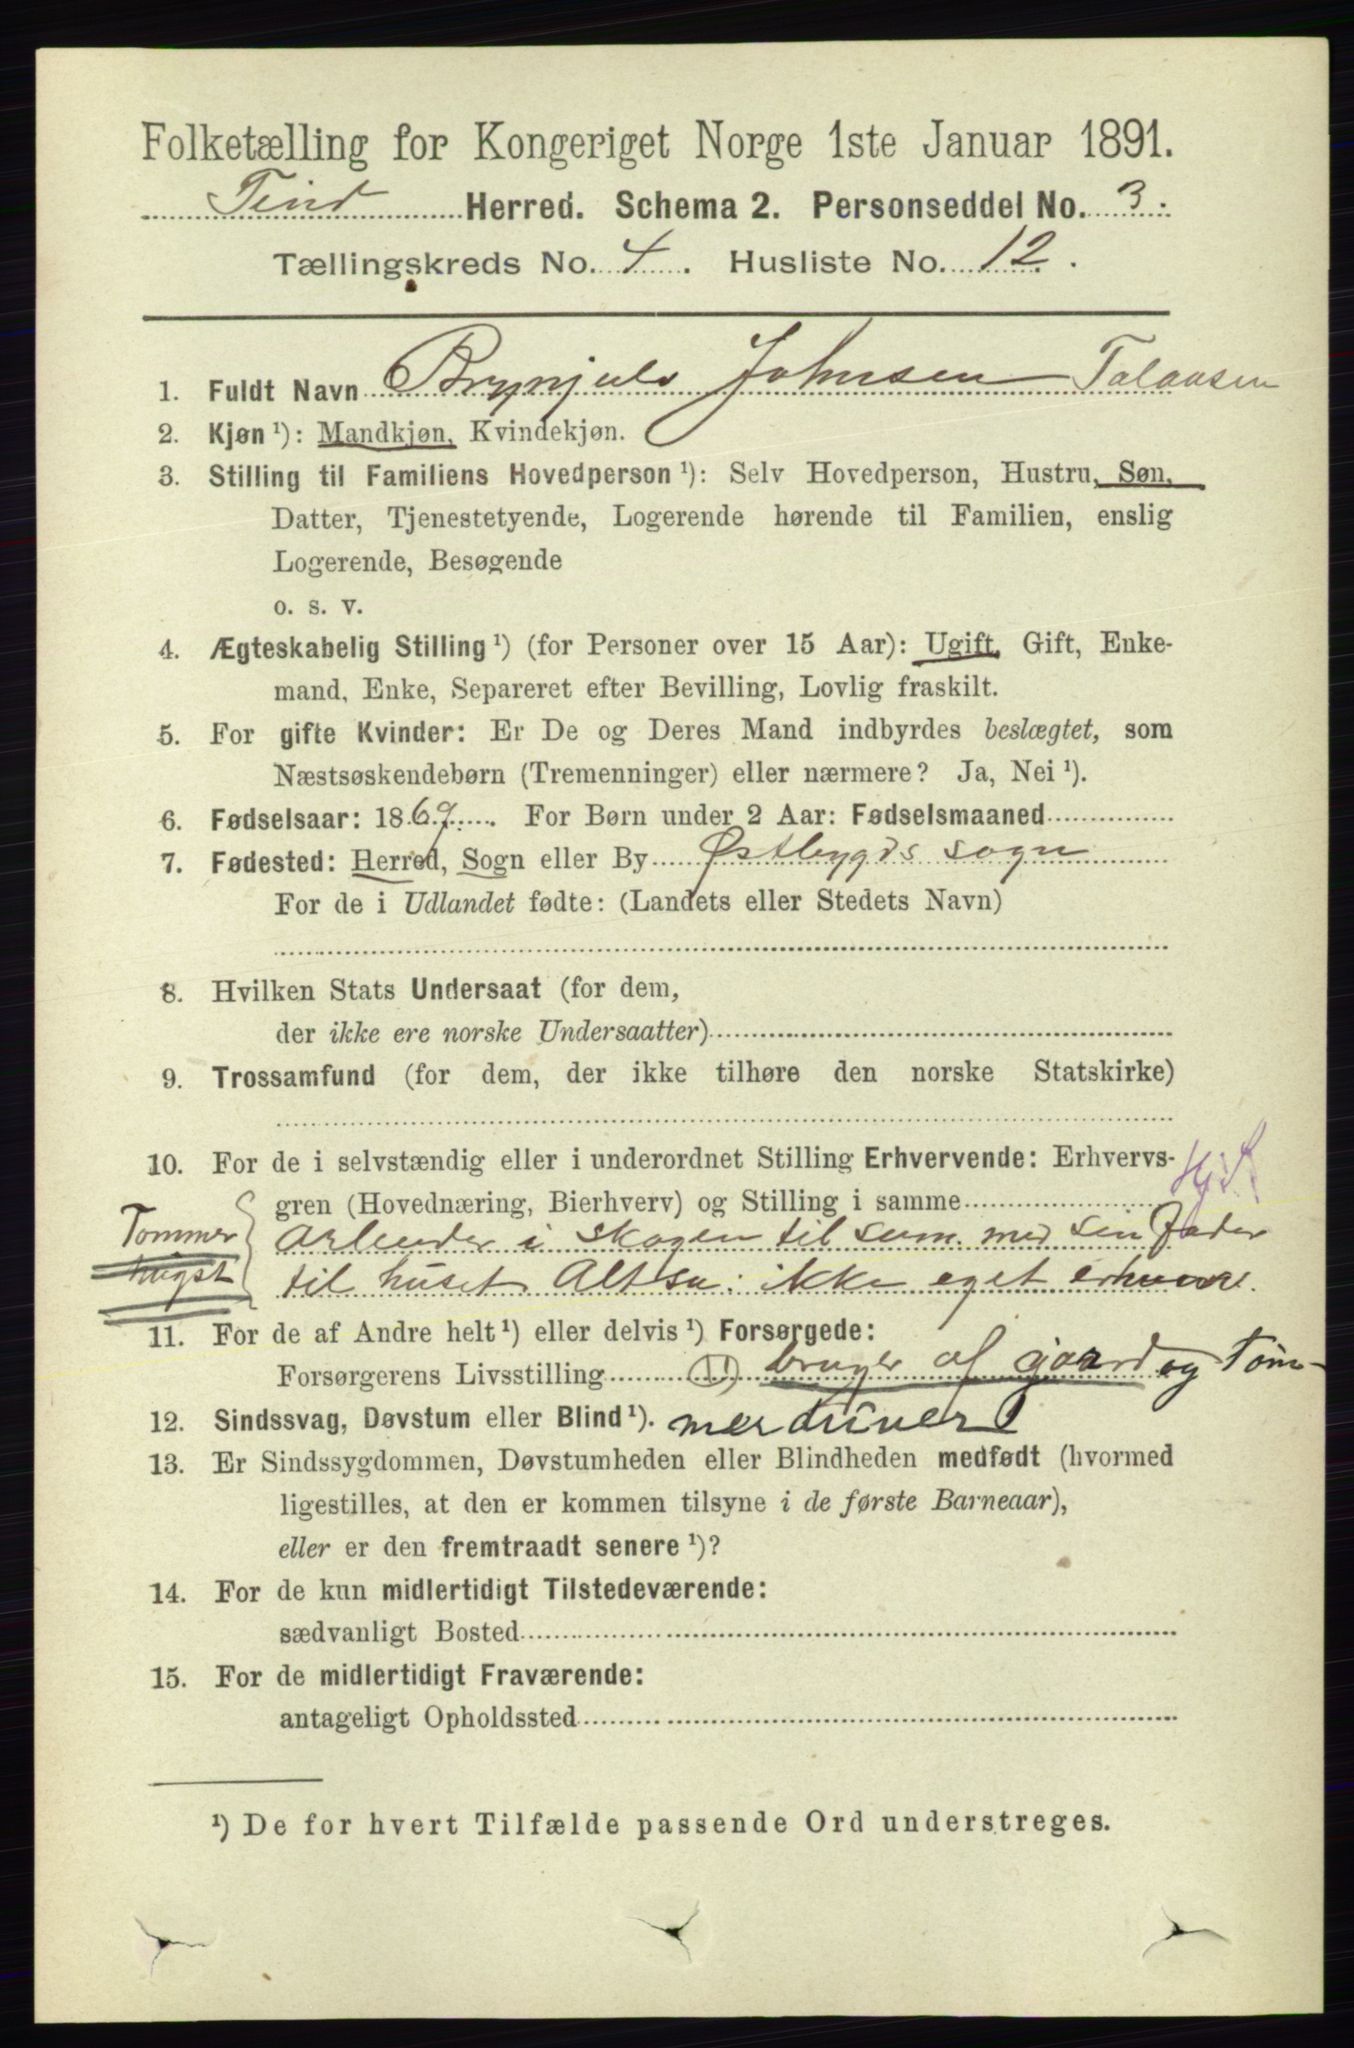 Folketælling for Kongeriget Norge 1ste Januar 1891.
Tind Herred. Schema 2. Personseddel No. 3.
Tællingskreds No. 4. Husliste No. 12.
1. Fuldt Navn Brynjuls Johnsen Talaasen
2. Kjøn ¹): Mandkjøn, Kvindekjøn.
3. Stilling til Familiens Hovedperson ¹): Selv Hovedperson, Hustru, Søn,
Datter, Tjenestetyende, Logerende hørende til Familien, enslig
Logerende, Besøgende
o. s. v.
4. Ægteskabelig Stilling ¹) (for Personer over 15 Aar): Ugift, Gift, Enke-
mand, Enke, Separeret efter Bevilling, Lovlig fraskilt.
5. For gifte Kvinder: Er De og Deres Mand indbyrdes beslægtet, som
Næstsøskendebørn (Tremenninger) eller nærmere? Ja, Nei ¹).
6. Fødselsaar: 1869. For Børn under 2 Aar: Fødselsmaaned
7. Fødested: Herred, Sogn eller By Østbygds sogn
For de i Udlandet fødte: (Landets eller Stedets Navn)
8. Hvilken Stats Undersaat (for dem,
der ikke ere norske Undersaatter)
9. Trossamfund (for dem, der ikke tilhøre den norske Statskirke)
10. For de i selvstændig eller i underordnet Stilling Erhvervende: Erhvervs-
gren (Hovednæring, Bierhverv) og Stilling i samme
Tommer Arbeider i skogen til sam. med sin Fader
hugst til huset Altsa: ikke eget
11. For de af Andre helt ¹) eller delvis ¹) Forsørgede:
Forsørgerens Livsstilling (11) bruger af gaard og Tøm-
12. Sindssvag, Døvstum eller Blind ¹). merdriver
13. Er Sindssygdommen, Døvstumheden eller Blindheden medfødt (hvormed
ligestilles, at den er kommen tilsyne i de første Barneaar),
eller er den fremtraadt senere ¹)?
14. For de kun midlertidigt Tilstedeværende:
sædvanligt Bosted
15. For de midlertidigt Fraværende:
antageligt Opholdssted
¹) De for hvert Tilfælde passende Ord understreges.